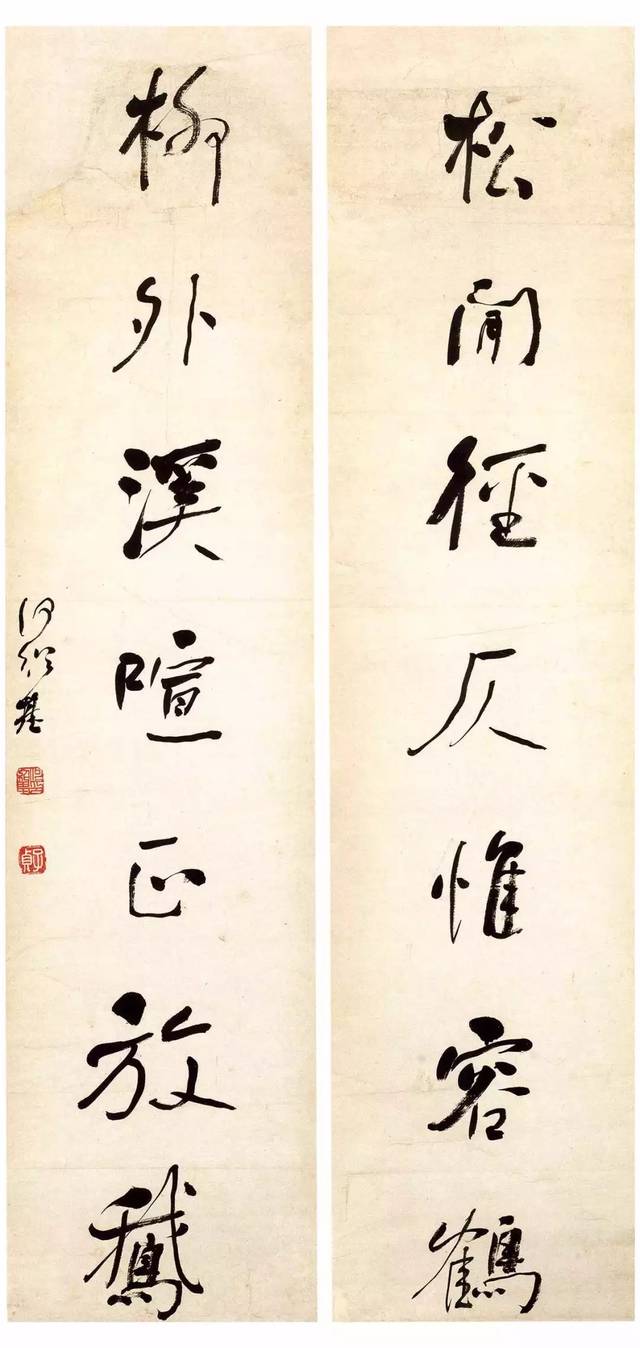 松間徑仄惟容鶴
柳外溪喧正放鵝
何紹基
子貞